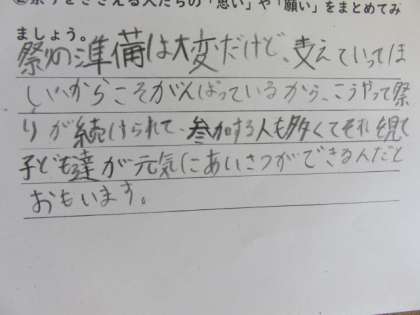 祭りをささえる人たちの「思い」や「願い」をまとめてみ
ましょう。
祭の準備は大変だけど、支えていってほ
しいからこそがんばっているから、こうやって祭
りが続けられて、参加する人も多くてそれを見て
子ども達が元気にあいさつができるんだと
おもいます。